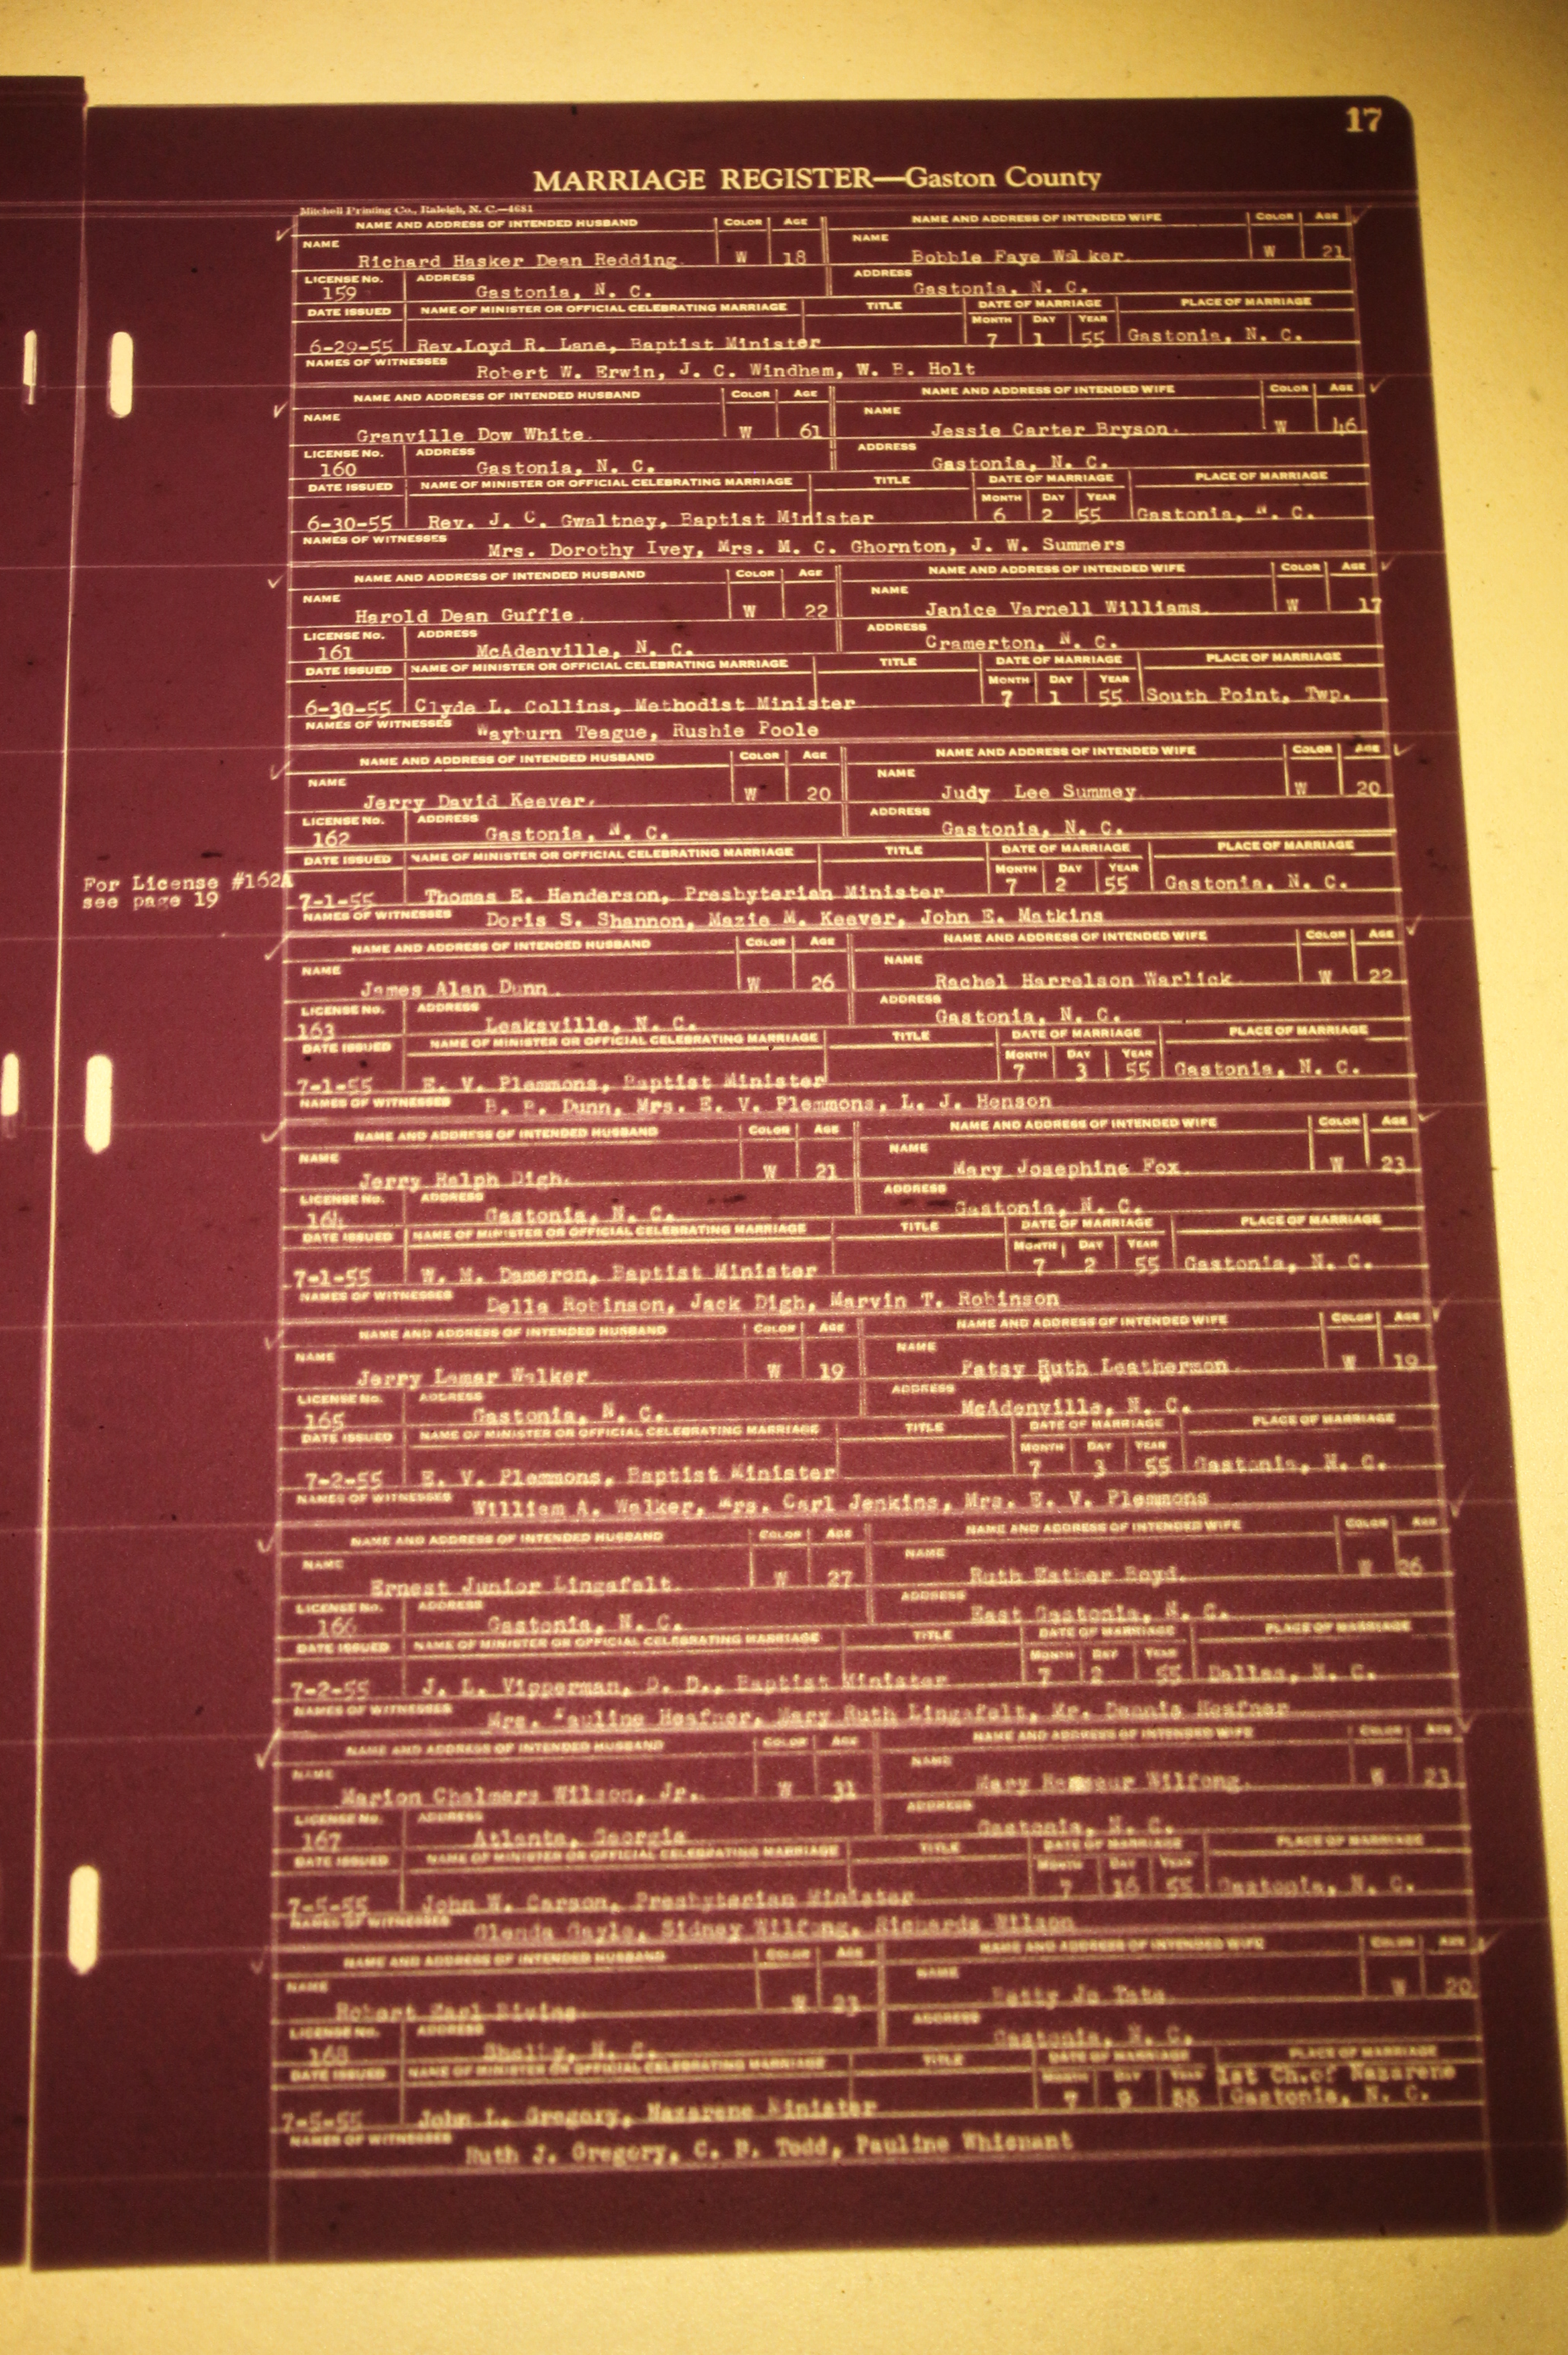 17
MARRIAGE REGISTER—Gaston County
Mitchell Printing Co., Raleigh, N. C.—4681
NAME AND ADDRESS OF INTENDED HUSBAND COLOR AGE NAME AND ADDRESS OF INTENDED WIFE COLOR AGE
NAME Richard Hasker Dean Redding W 18 NAME Bobbie Faye Walker W 21
LICENSE No. 159 ADDRESS Gastonia, N. C. ADDRESS Gastonia, N. C.
DATE ISSUED NAME OF MINISTER OR OFFICIAL CELEBRATING MARRIAGE TITLE DATE OF MARRIAGE PLACE OF MARRIAGE
MONTH DAY YEAR
6-29-55 Rev.Loyd R. Lane, Baptist Minister 7 1 55 Gastonia, N. C.
NAMES OF WITNESSES Robert W. Erwin, J. C. Windham, W. B. Holt
NAME AND ADDRESS OF INTENDED HUSBAND COLOR AGE NAME AND ADDRESS OF INTENDED WIFE COLOR AGE
NAME Granville Dow White. W 61 NAME Jessie Carter Bryson. W 46
LICENSE No. 160 ADDRESS Gastonia, N. C. ADDRESS Gastonia, N. C.
DATE ISSUED NAME OF MINISTER OR OFFICIAL CELEBRATING MARRIAGE TITLE DATE OF MARRIAGE PLACE OF MARRIAGE
MONTH DAY YEAR
6-30-55 Rev. J. C. Gwaltney, Baptist Minister 6 2 55 Gastonia, N. C.
NAMES OF WITNESSES Mrs. Dorothy Ivey, Mrs. M. C. Ghornton, J. W. Summers
NAME AND ADDRESS OF INTENDED HUSBAND COLOR AGE NAME AND ADDRESS OF INTENDED WIFE COLOR AGE
NAME Harold Dean Guffie. W 22 NAME Janice Varnell Williams. W 17
LICENSE No. 161 ADDRESS McAdenville, N. C. ADDRESS Cramerton, N. C.
DATE ISSUED NAME OF MINISTER OR OFFICIAL CELEBRATING MARRIAGE TITLE DATE OF MARRIAGE PLACE OF MARRIAGE
MONTH DAY YEAR
6-30-55 Clyde L. Collins, Methodist Minister 7 1 55 South Point, Twp.
NAMES OF WITNESSES Wayburn Teague, Rushie Poole
NAME AND ADDRESS OF INTENDED HUSBAND COLOR AGE NAME AND ADDRESS OF INTENDED WIFE COLOR AGE
NAME Jerry David Keever. W 20 NAME Judy Lee Summey. W 20
LICENSE No. 162 ADDRESS Gastonia, N. C. ADDRESS Gastonia, N. C.
DATE ISSUED NAME OF MINISTER OR OFFICIAL CELEBRATING MARRIAGE TITLE DATE OF MARRIAGE PLACE OF MARRIAGE
MONTH DAY YEAR
For License #162A
see page 19
7-1-55 Thomas E. Henderson, Presbyterian Minister 7 2 55 Gastonia, N. C.
NAMES OF WITNESSES Doris S. Shannon, Mazie M. Keever, John E. Matkins
NAME AND ADDRESS OF INTENDED HUSBAND COLOR AGE NAME AND ADDRESS OF INTENDED WIFE COLOR AGE
NAME James Alan Dunn. W 26 NAME Rachel Harrelson Warlick W 22
LICENSE No. 163 ADDRESS Leaksville, N. C. ADDRESS Gastonia, N. C.
DATE ISSUED NAME OF MINISTER OR OFFICIAL CELEBRATING MARRIAGE TITLE DATE OF MARRIAGE PLACE OF MARRIAGE
MONTH DAY YEAR
7-1-55 E. V. Plemmons, Baptist Minister 7 3 55 Gastonia, N. C.
NAMES OF WITNESSES Dunn, Mrs. E. V. Plemmons, L. J. Henson
NAME AND ADDRESS OF INTENDED HUSBAND COLOR AGE NAME AND ADDRESS OF INTENDED WIFE COLOR AGE
NAME Jerry Ralph Digh. W 21 NAME Mary Josephine Fox W 23
LICENSE No. 164 ADDRESS Gastonia, N. C. ADDRESS Gastonia, N. C.
DATE ISSUED NAME OF MINISTER OR OFFICIAL CELEBRATING MARRIAGE TITLE DATE OF MARRIAGE PLACE OF MARRIAGE
MONTH DAY YEAR
7-1-55 W. M. Dameron, Baptist Minister 7 2 55 Gastonia, N. C.
NAMES OF WITNESSES Della Robinson, Jack Digh, Marvin T. Robinson
NAME AND ADDRESS OF INTENDED HUSBAND COLOR AGE NAME AND ADDRESS OF INTENDED WIFE COLOR AGE
NAME Jerry Lamar Walker W 19 NAME Patsy Ruth Leatherman. W 19
LICENSE No. 165 ADDRESS Gastonia, N. C. ADDRESS McAdenville, N. C.
DATE ISSUED NAME OF MINISTER OR OFFICIAL CELEBRATING MARRIAGE TITLE DATE OF MARRIAGE PLACE OF MARRIAGE
MONTH DAY YEAR
7-2-55 E. V. Plemmons, Baptist Minister 7 3 55 Gastonia, N. C.
NAMES OF WITNESSES William A. Walker, Mrs. Carl Jenkins, Mrs. E. V. Plemmons
NAME AND ADDRESS OF INTENDED HUSBAND COLOR AGE NAME AND ADDRESS OF INTENDED WIFE COLOR AGE
NAME Ernest Junior Lingafelt. W 27 NAME Ruth Esther Boyd. W 26
LICENSE No. 166 ADDRESS Gastonia, N. C. ADDRESS East Gastonia, N. C.
DATE ISSUED NAME OF MINISTER OR OFFICIAL CELEBRATING MARRIAGE TITLE DATE OF MARRIAGE PLACE OF MARRIAGE
MONTH DAY YEAR
7-2-55 J. L. Vipperman, D. D., Baptist Minister 7 2 55 Dallas, N. C.
NAMES OF WITNESSES Mrs. Pauline Heafner, Mary Ruth Lingafelt, Mr. Dennis Heafner
NAME AND ADDRESS OF INTENDED HUSBAND COLOR AGE NAME AND ADDRESS OF INTENDED WIFE COLOR AGE
NAME Marion Chalmers Wilson, Jr. W 31 NAME Mary Ramseur Wilfong. W 23
LICENSE No. 167 ADDRESS Atlanta, Georgia ADDRESS Gastonia, N. C.
DATE ISSUED NAME OF MINISTER OR OFFICIAL CELEBRATING MARRIAGE TITLE DATE OF MARRIAGE PLACE OF MARRIAGE
MONTH DAY YEAR
7-5-55 John W. Carson, Presbyterian Minister 7 16 55 Gastonia, N. C.
NAMES OF WITNESSES Glenda Gayle, Sidney Wilfong, Richards Wilson
NAME AND ADDRESS OF INTENDED HUSBAND COLOR AGE NAME AND ADDRESS OF INTENDED WIFE COLOR AGE
NAME Robert Earl W 23 NAME Betty Jo Tate W 20
LICENSE No. 168 ADDRESS Shelby, N. C. ADDRESS Gastonia, N. C.
DATE ISSUED NAME OF MINISTER OR OFFICIAL CELEBRATING MARRIAGE TITLE DATE OF MARRIAGE PLACE OF MARRIAGE
MONTH DAY YEAR 1st Ch.of Nazarene
7-5-55 John L. Gregory, Nazarene Minister 7 9 55 Gastonia, N. C.
NAMES OF WITNESSES Ruth J. Gregory, C. B. Todd, Pauline Whisnant